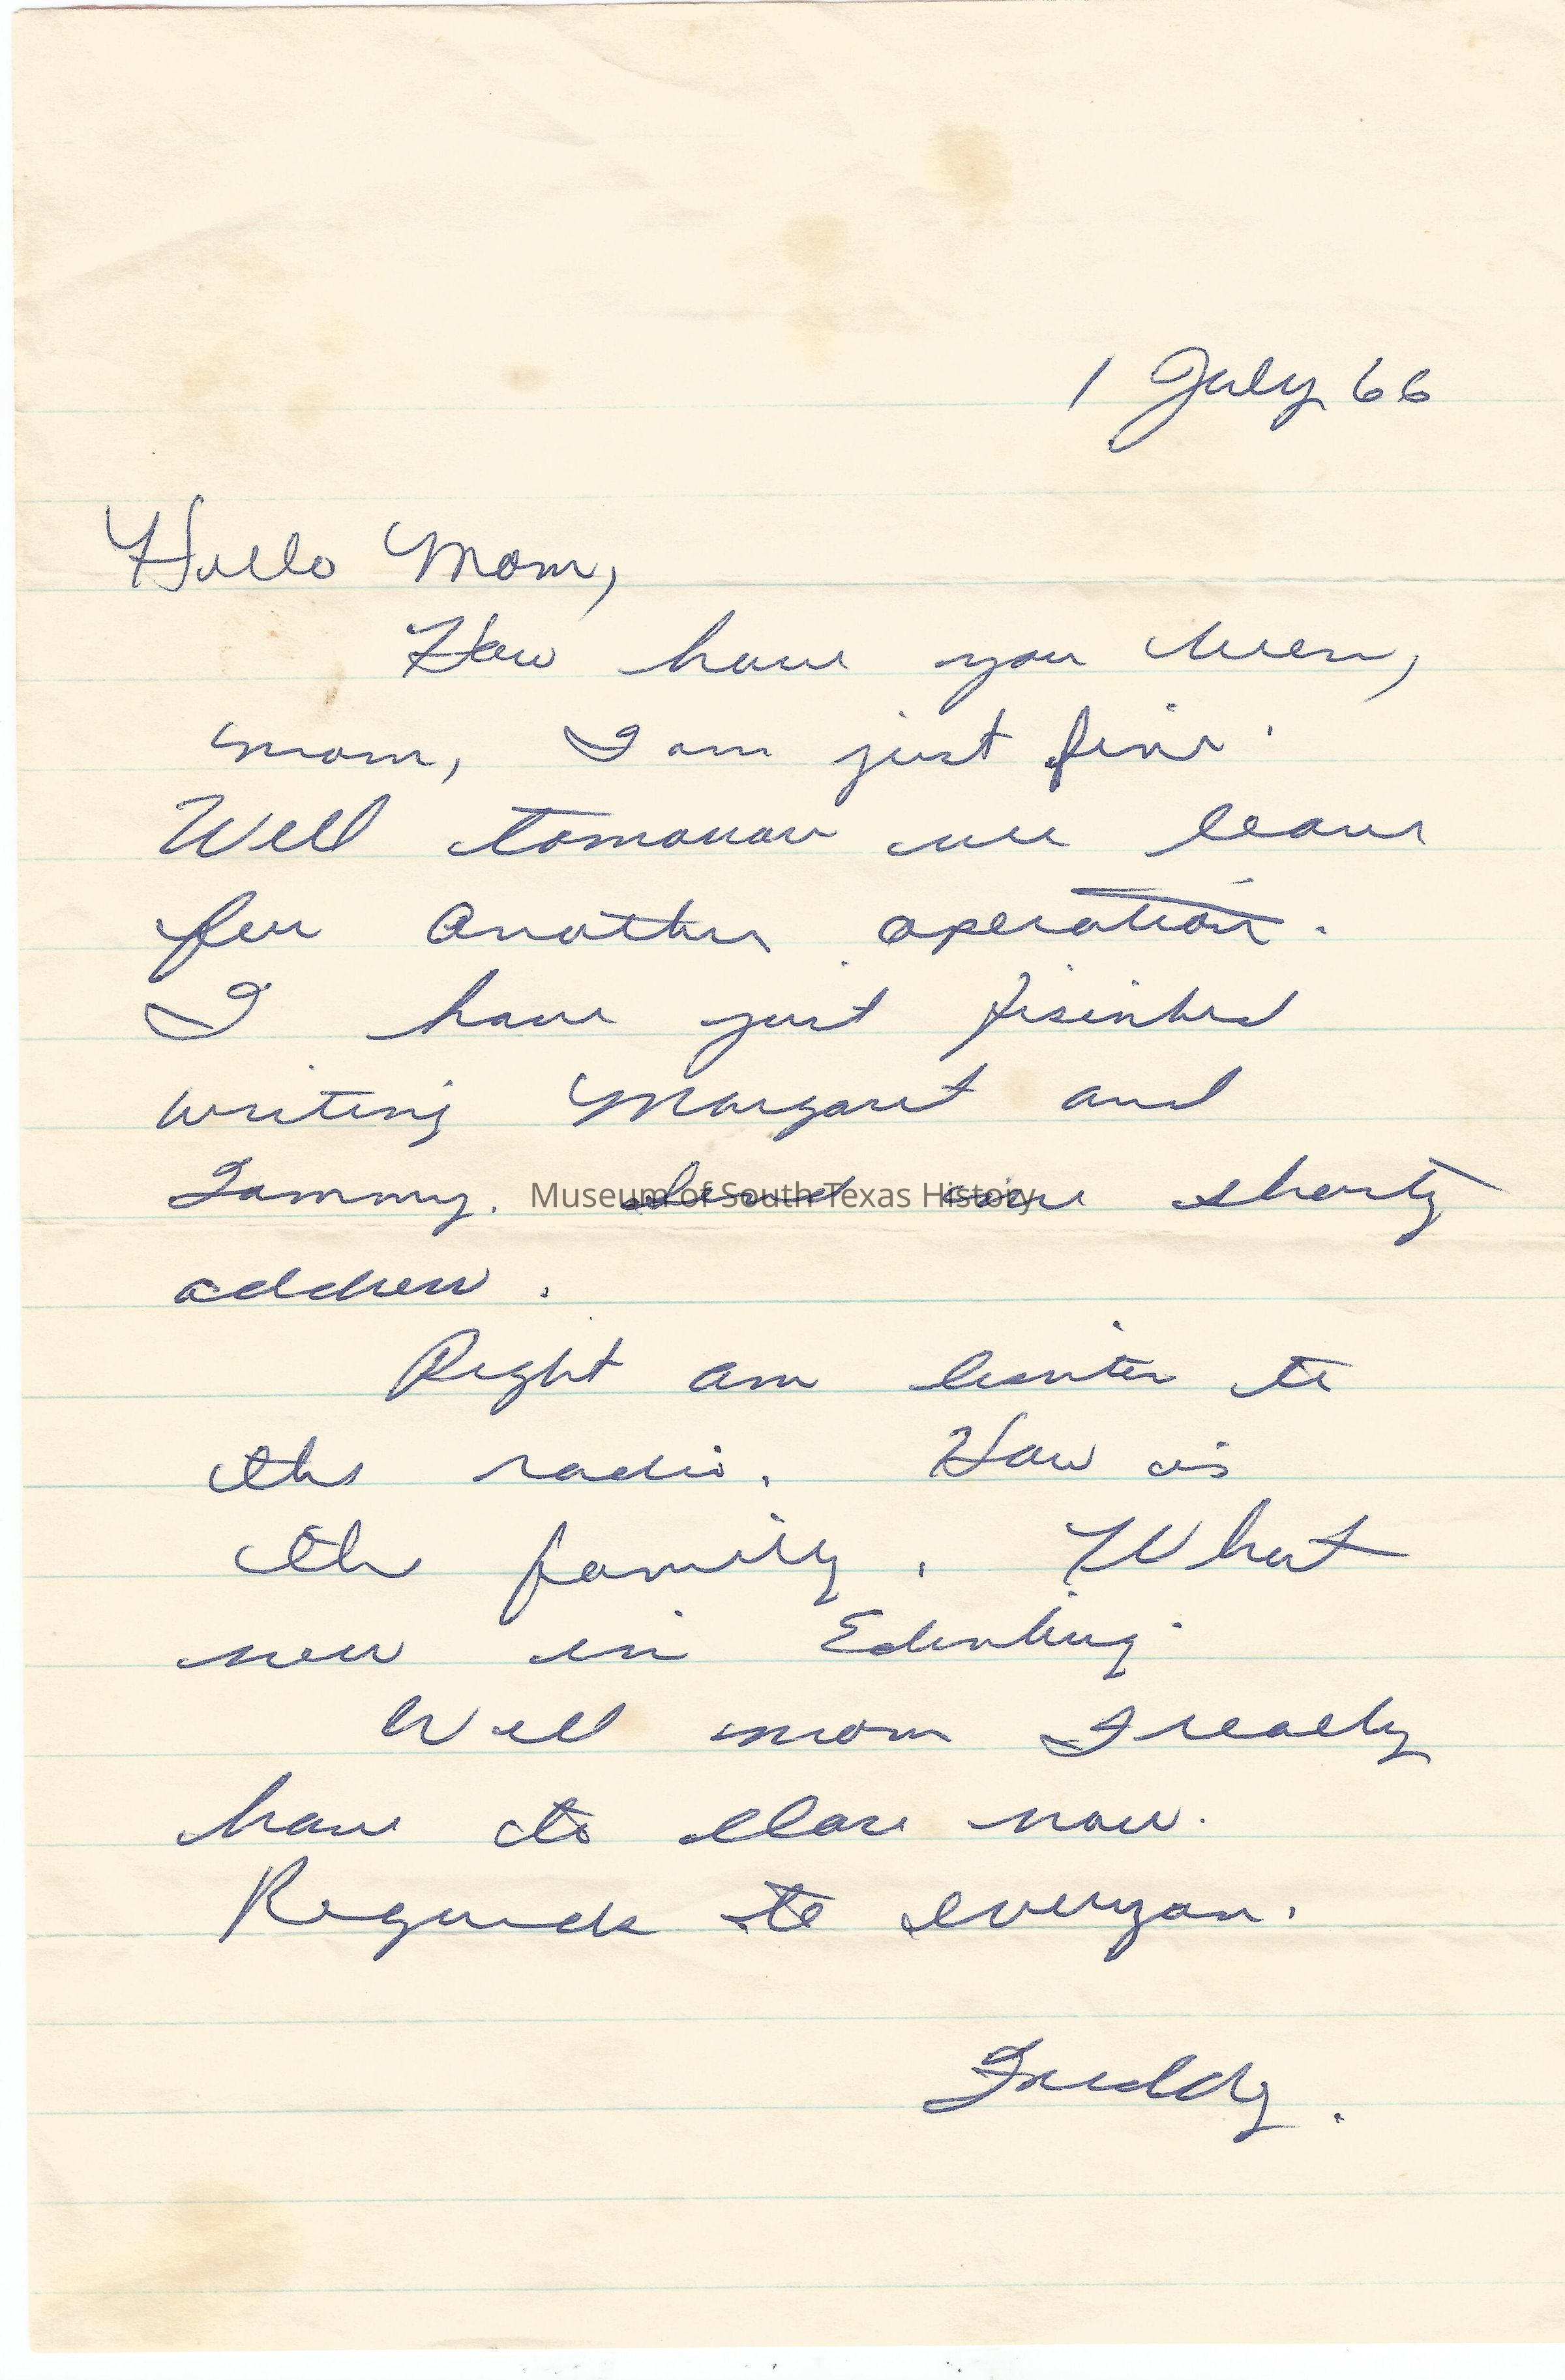 1 July 66
Hello Mom,
How have you been,
mom, I am just fine.
Well tomorrow we leave
for another operation.
I have just fisinhed
writing Margaret and
Tammy. Send me shorty
address.
Right am lisnten to
the radio. How is
the family. What
new in Edinburg.
Well mom I really
have to close now.
Regards to everyone.
Freddy.
Museum of South Texas History